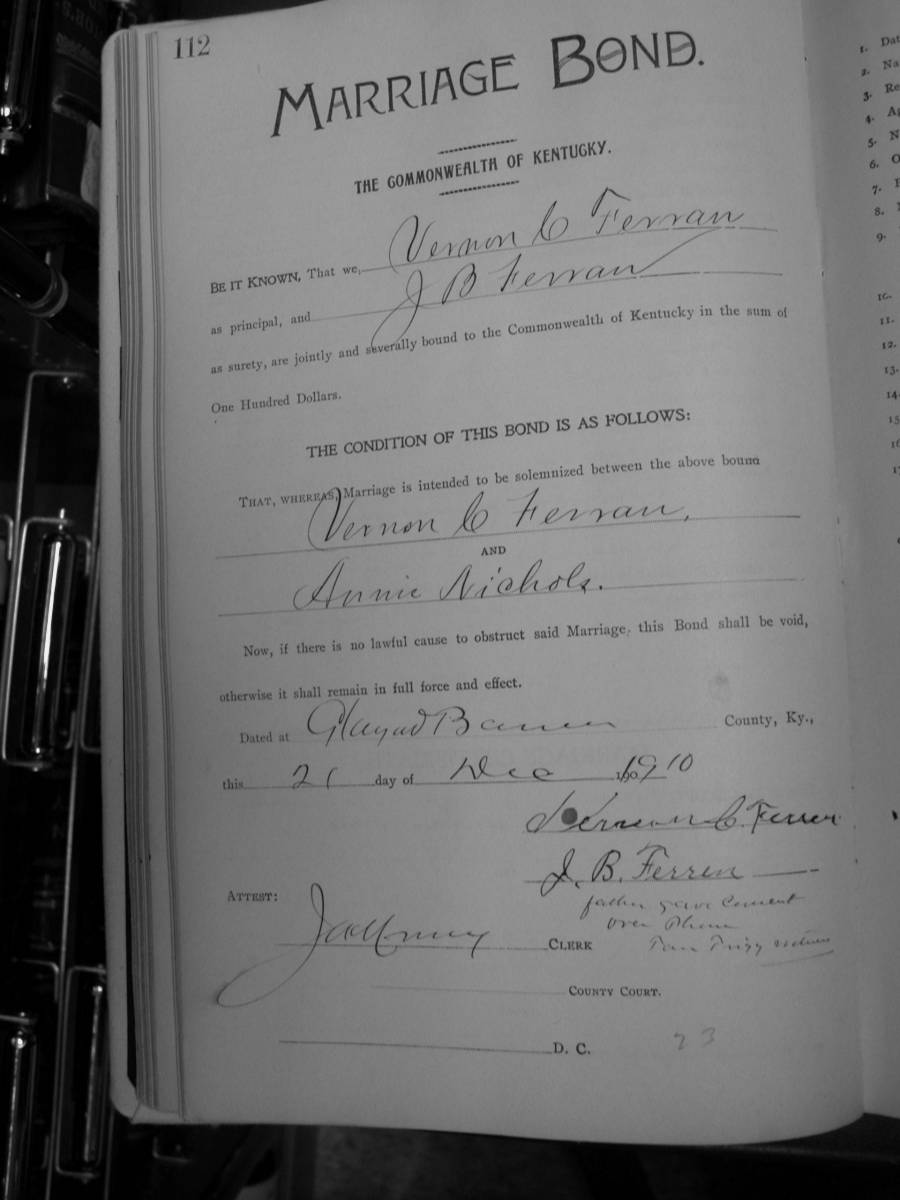 112
MARRIAGE BOND.
THE COMMONWEALTH OF KENTUCKY.
BE IT KNOWN, That we, Vernon C Ferran
as principal, and J B Ferran
as surety, are jointly and severally bound to the Commonwealth of Kentucky in the sum of
One Hundred Dollars.
THE CONDITION OF THIS BOND IS AS FOLLOWS:
THAT, WHEREAS, Marriage is intended to be solemnized between the above bound
Vernon C Ferran,
AND
Annie Nichols.
Now, if there is no lawful cause to obstruct said Marriage, this Bond shall be void,
otherwise it shall remain in full force and effect.
Dated at County, Ky.,
this 21 day of Dec 1910
C. Ferren
J. B. Ferren
father gave consent
over Phone
ATTEST:
CLERK
COUNTY COURT.
D. C.
23
1. Dat
2. Na
3. Re
4. Ap
5. N
6. O
7.
8.
9.
10.
11.
12.
13.
14.